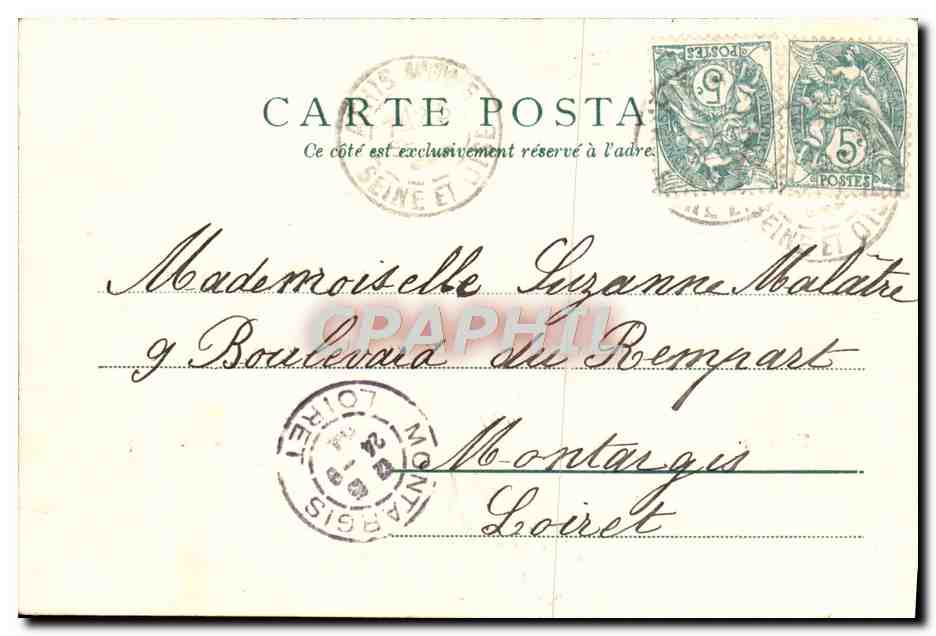 CARTE POSTA
Ce côté est exclusivement réservé à l'adre.
SEINE ET OISE
POSTES
5c
5c
POSTES
SEINE ET OIS
Mademoiselle Suzanne Malâtre
9 Boulevard du Rempart
CPAPHIL
Montargis
Loiret
MONTARGIS
LOIRET
24